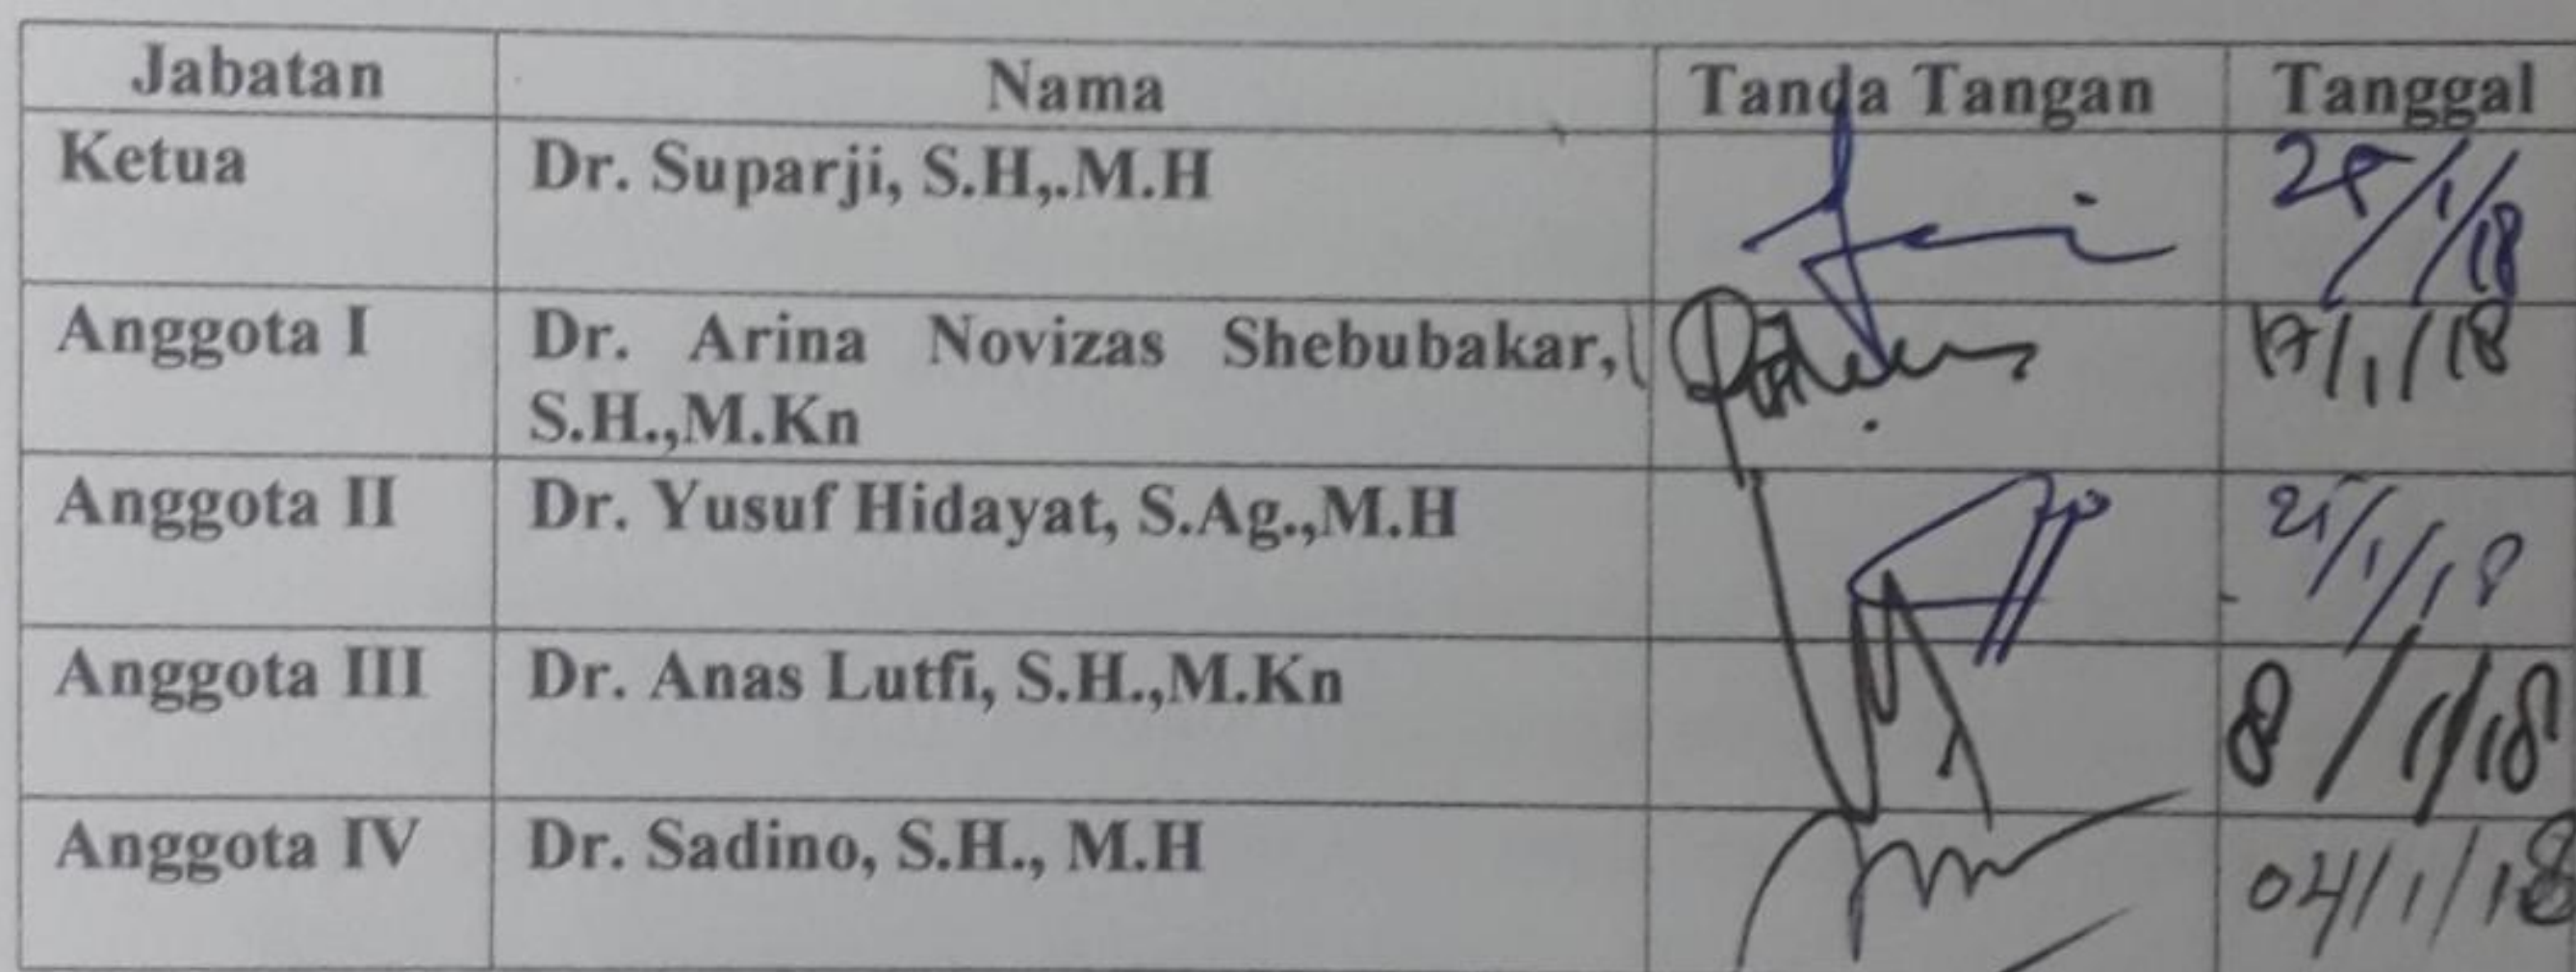 Jabatan Nama Tanda Tangan Tanggal
Ketua Dr. Suparji, S.H,.M.H
Anggota I Dr. Arina Novizas Shebubakar, 17/1/18
S.H.,M.Kn
Anggota II Dr. Yusuf Hidayat, S.Ag.,M.H
Anggota III Dr. Anas Lutfi, S.H.,M.Kn 8/1/18
Anggota IV Dr. Sadino, S.H., M.H 04/1/18